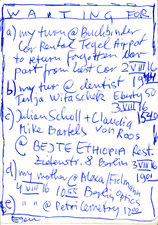 WAITING FOR
a) my turn @ Buchbinder
Car Rental Tegel Airport
to return forgotten
part from last car 2 VIII 16
b) my tur @ dentist 19
Tanja Witaschek Eberty 50
3 VIII 16
c) Julian Scholl + Claudia 1540
Mike Bartels van Roos
@ BEJTE ETHIOPIA Rest.
Zietenstr. 8 Berlin 3 VIII 16
d) my mother @ Alexa/Fielmann 1901
4 VIII 16 1055 Berlin Optics
e) " @ Petri Cemetery 1200